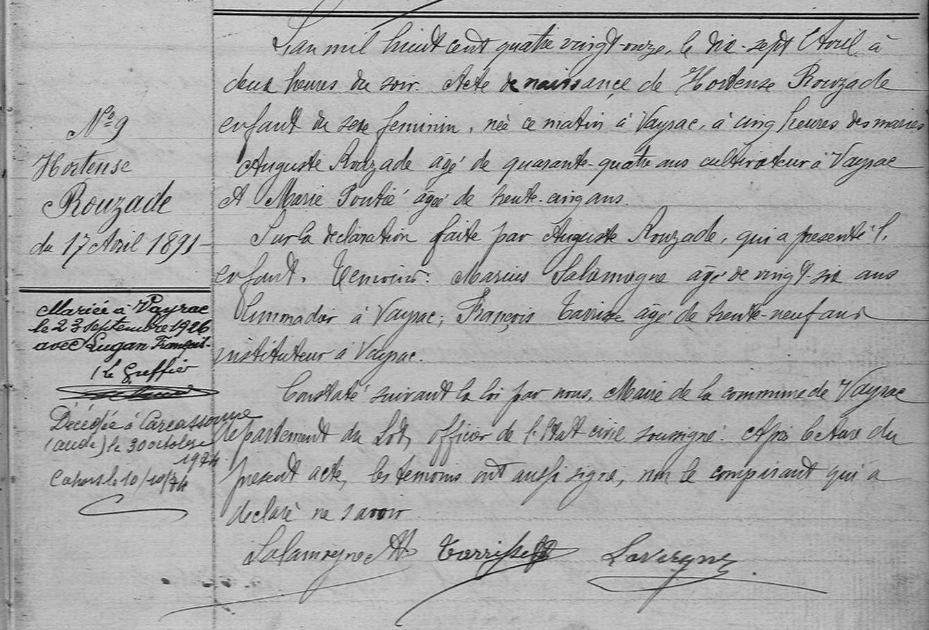 N° 9
Hortense
Rouzade
du 17 Avril 1891
Mariée à Vayrac
le 23 septembre 1926
avec Lugan François.
le Greffier
Décédée à Carcassonne
(aude) le 30 octobre
1974
Cahors le 10/10/74
L'an mil huit cent quatre vingt-onze, le dix-sept Avril à
deux heures du soir. Acte de naissance de Hortense Rouzade
enfant du sexe feminin, née ce matin à Vayrac, à cinq heures des mariés
Auguste Rouzade âgé de quarante-quatre ans cultivateur à Vayrac
et Marie Poutié âgé de trente-cinq ans.
Sur la déclaration faite par Auguste Rouzade, qui a presenté l'
enfant. Temoins: Marius Salamagne âgé de vingt six ans
à Vayrac; François Terrisse âgé de trente-neuf ans
instituteur à Vayrac.
Constaté suivant la loi par nous, Maire de la commune de Vayrac
departement du Lot, officier de l'Etat civil soussigné. Après lecture du
present acte, les temoins ont aussi signé, non le comparant qui a
declaré ne savoir
Salamagne Terrisse Lavergne